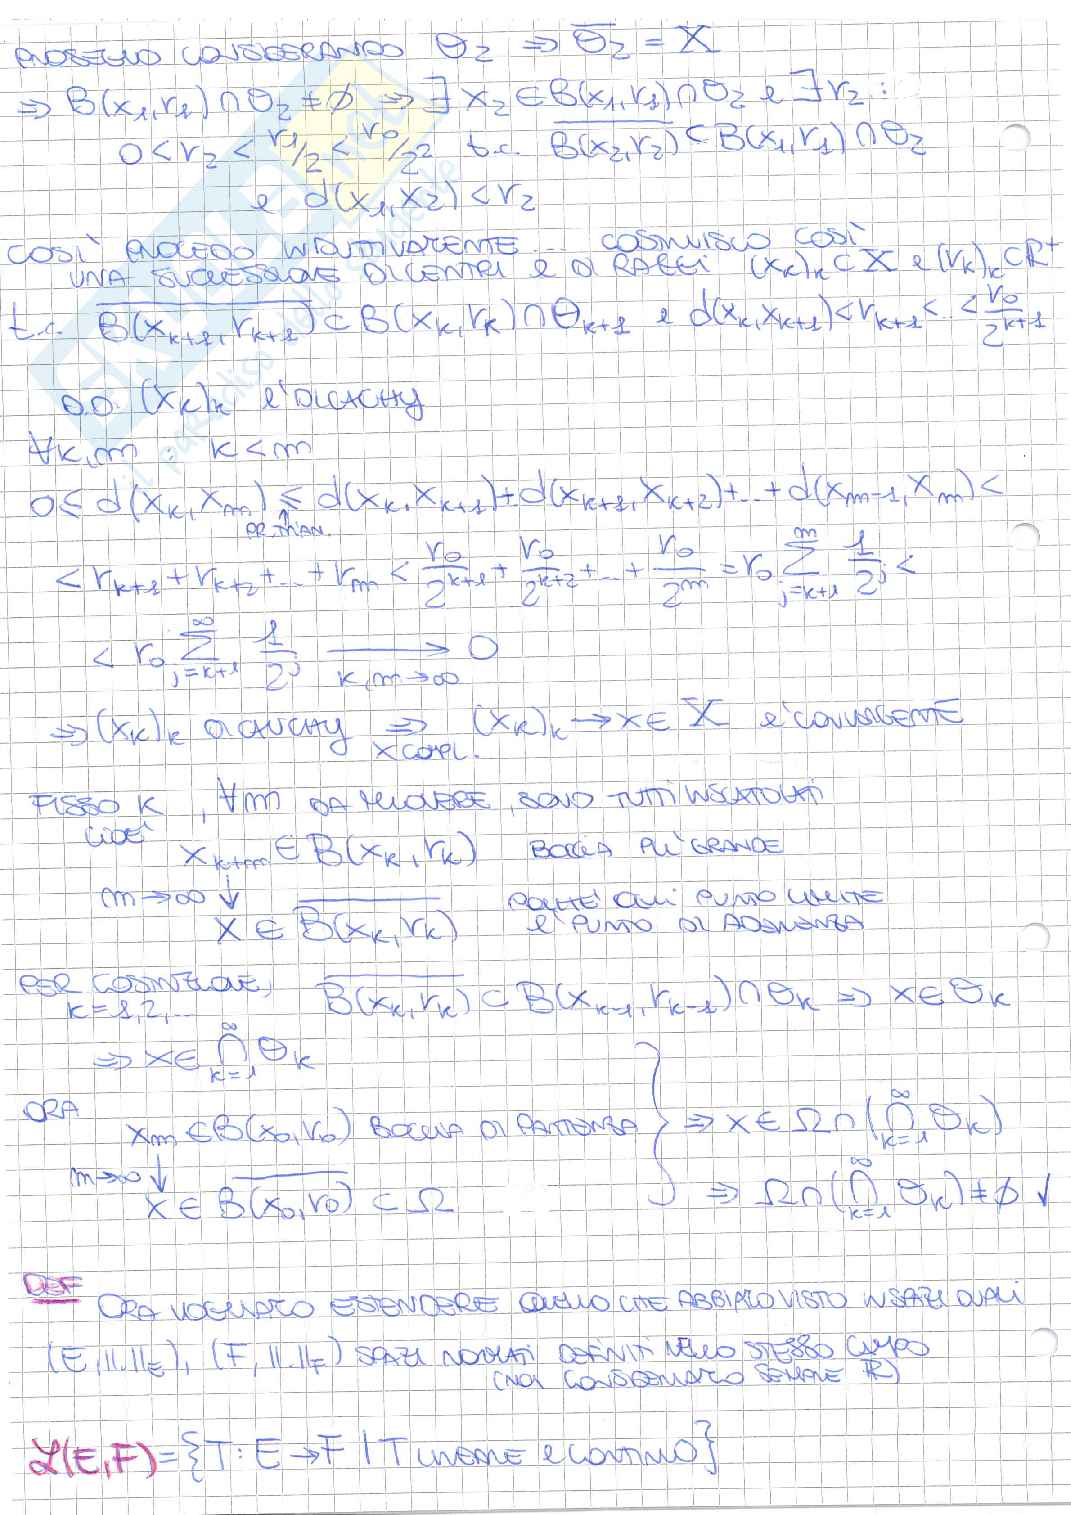 PROSEGUO CONSIDERANDO Θ₂ ⇒ Θ̅₂ = X
⇒ B(x₁,r₁) ∩ Θ₂ ≠ ∅ ⇒ ∃ x₂ ∈ B(x₁,r₁) ∩ Θ₂ e ∃ r₂ :
0 < r₂ < r₁/2 < r₀/2² t.c. \overline{B(x₂,r₂)} ⊂ B(x₁,r₁) ∩ Θ₂
e d(x₁,x₂) < r₂
COSÌ PROCEDO INDUTTIVAMENTE ... COSTRUISCO COSÌ
UNA SUCCESSIONE DI CENTRI e DI RAGGI (x_k)_k ⊂ X e (r_k)_k ⊂ R⁺
t.c. \overline{B(x_{k+1},r_{k+1})} ⊂ B(x_k,r_k) ∩ Θ_{k+1} e d(x_k,x_{k+1}) < r_{k+1} < .. < r₀/2^{k+1}
D.D. (x_k)_k e' DI CACHY
∀k,m : k < m
0 ≤ d(x_k,x_m) ≤ d(x_k,x_{k+1}) + d(x_{k+1},x_{k+2}) + ... + d(x_{m-1},x_m) <
↑
< r_{k+1} + r_{k+2} + ... + r_m < r₀/2^{k+1} + r₀/2^{k+2} + ... + r₀/2^m = r₀ ∑_{j=k+1}^{m} 1/2^j <
< r₀ ∑_{j=k+1}^{∞} 1/2^j ⟶_{k,m→∞} 0
⇒ (x_k)_k DI CAUCHY ⇒_{X COMPL.} (x_k)_k → x ∈ X e' CONVERGENTE
FISSO K, ∀m DA MUOVERE, SONO TUTTI INSCATOLATI
CIOE'
x_{k+m} ∈ B(x_k,r_k) BOCCIA PIU' GRANDE
m→∞ ↓ POICHE' OGNI PUNTO LIMITE
x ∈ \overline{B(x_k,r_k)} e' PUNTO DI ADERENZA
PER COSTRUZIONE, \overline{B(x_k,r_k)} ⊂ B(x_{k-1},r_{k-1}) ∩ Θ_k ⇒ x ∈ Θ_k
k=1,2,...
⇒ x ∈ ⋂_{k=1}^{∞} Θ_k
ORA
x_m ∈ B(x₀,r₀) BOCCIA DI PARTENZA } ⇒ x ∈ Ω ∩ (⋂_{k=1}^{∞} Θ_k)
m→∞ ↓
x ∈ \overline{B(x₀,r₀)} ⊂ Ω ⇒ Ω ∩ (⋂_{k=1}^{∞} Θ_k) ≠ ∅ ✓
DEF
ORA VOGLIAMO ESTENDERE QUELLO CHE ABBIAMO VISTO IN SPAZI DUALI
(E,||.||_E), (F,||.||_F) SPAZI NORMATI DEFINITI NELLO STESSO CAMPO
(NOI CONSIDERIAMO SEMPRE ℝ)
ℒ(E,F) = {T : E → F | T LINEARE e CONTINUO}